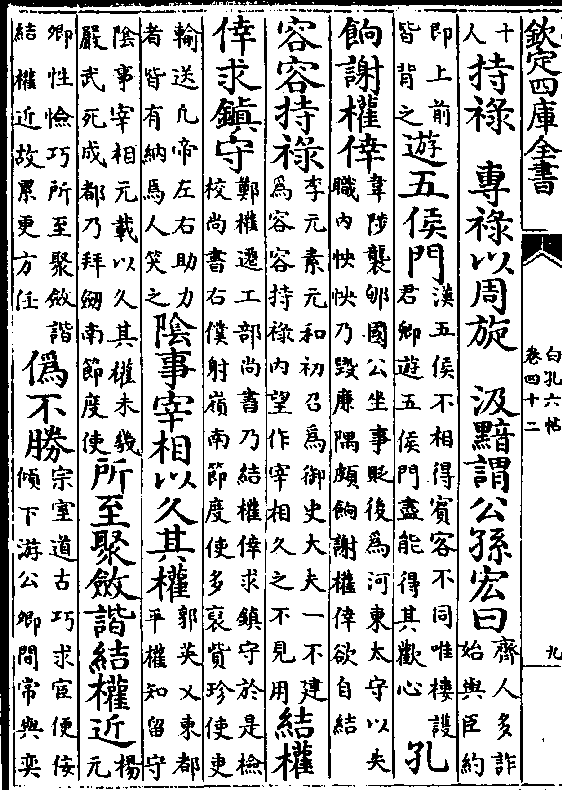 欽定四庫全書
白孔六帖
卷四十二
九
十
人
持祿 專祿以周旋 汲黯謂公孫宏曰
齊人多詐
始與臣約
即上前
皆背之
遊五侯門
漢五侯不相得賓客不同唯樓護
君卿遊五侯門盡能得其歡心
孔
餉謝權倖
韋陟襲郇國公坐事貶後為河東太守以失
職內怏怏乃毀廉隅頗餉謝權倖欲自結
容容持祿
李元素元和初召為御史大夫一不建
為容容持祿內望作宰相久之不見用
結權
倖求鎮守
鄭權遷工部尚書乃結權倖求鎮守於是檢
校尚書右僕射嶺南節度使多裒貲珍使吏
輸送凡帝左右助力
者皆有納馬人笑之
陰事宰相以久其權
郭英乂東都
平權知留守
陰事宰相元載以久其權未幾
嚴武死成都乃拜劒南節度使
所至聚斂諧結權近
楊
元
卿性憸巧所至聚斂諧
結權近故累更方任
偽不勝
宗室道古巧求宦便佞
傾下游公卿間常與奕